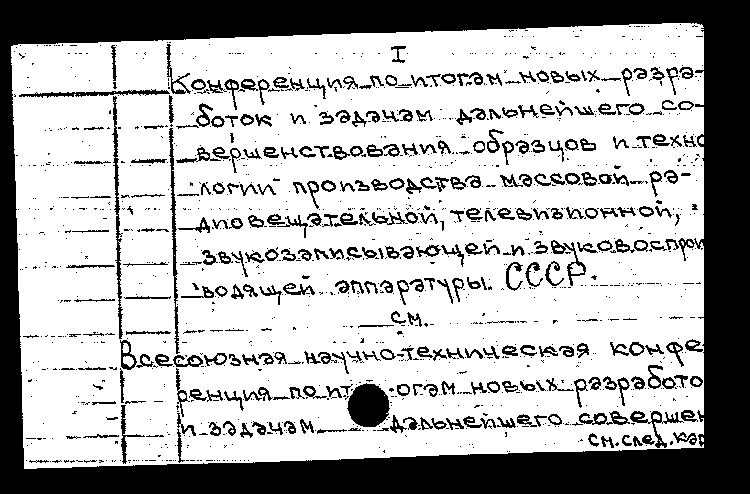 I
Конференция по итогам новых разра-
боток и задачам дальнейшего со-
вершенствования образцов и техно
логии производства массовой ра-
диовещательной, телевизионной,
звукозаписывающей и звуковоспрои
водящей аппаратуры. СССР.
см.
Всесоюзная научно-техническая конфе
ренция по ит огам новых разработо
и задачам дальнейшего совершен
см. след. кар